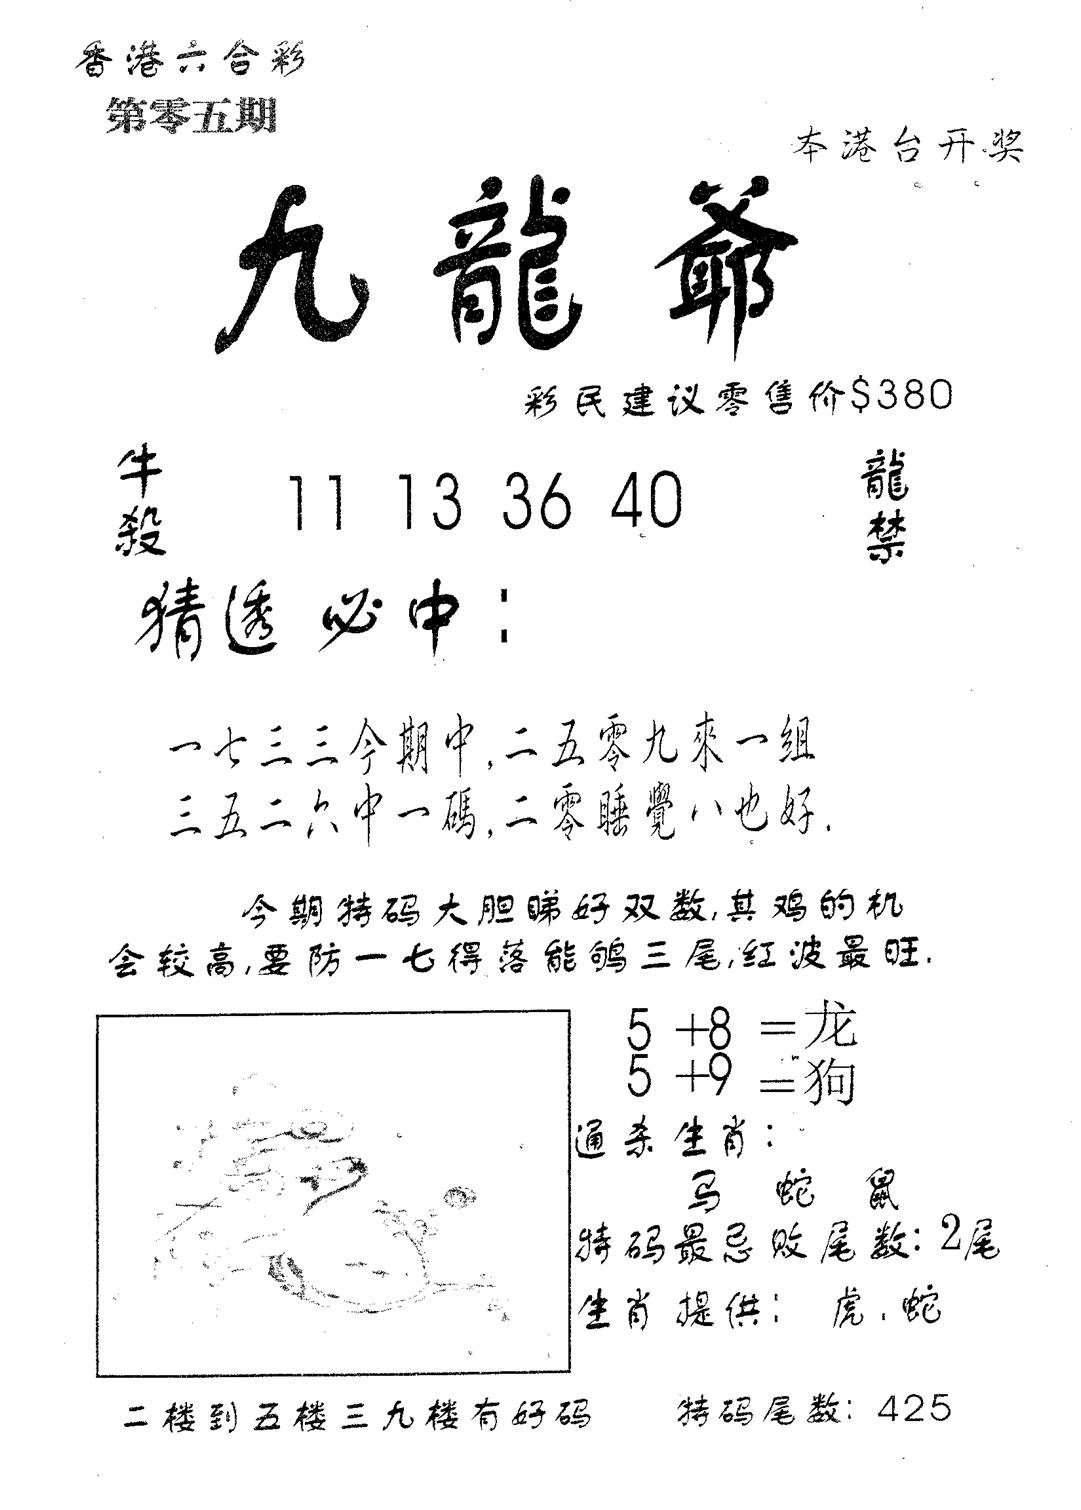 香港六合彩
第零五期
本港台开奖
九龍爺
彩民建议零售价$380
牛殺
11 13 36 40
龍禁
猜透必中：
一七三三今期中,二五零九來一组
三五二六中一碼,二零睡覺八也好.
今期特码大胆睇好双数,其鸡的机
会较高,要防一七得落能鸲三尾,红波最旺.
5+8=龙
5+9=狗
通杀生肖：
马 蛇 鼠
特码最忌败尾数：2尾
生肖提供： 虎.蛇
二楼到五楼三九楼有好码
特码尾数：425